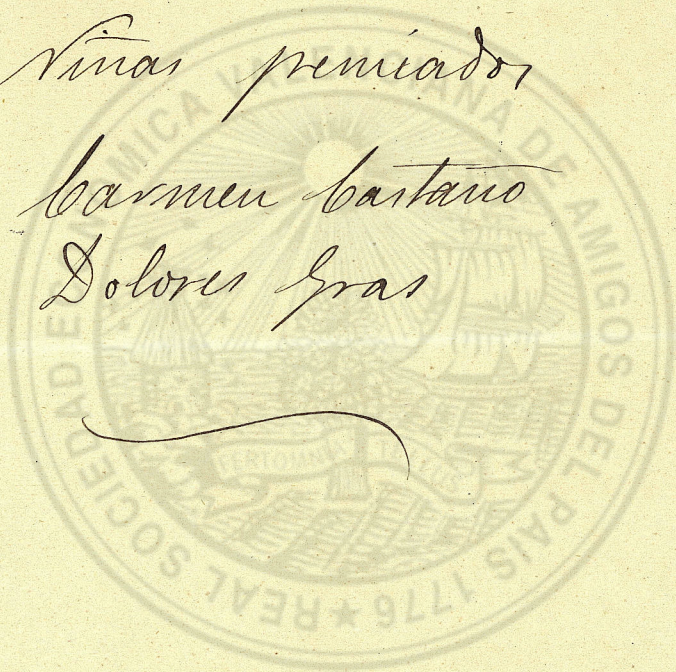 Niñas premiados
Carmen Castaño
Dolores Gras
REAL SOCIEDAD ECONOMICA VALENCIANA DE AMIGOS DEL PAIS 1776
FERT OMNIA TELLUS